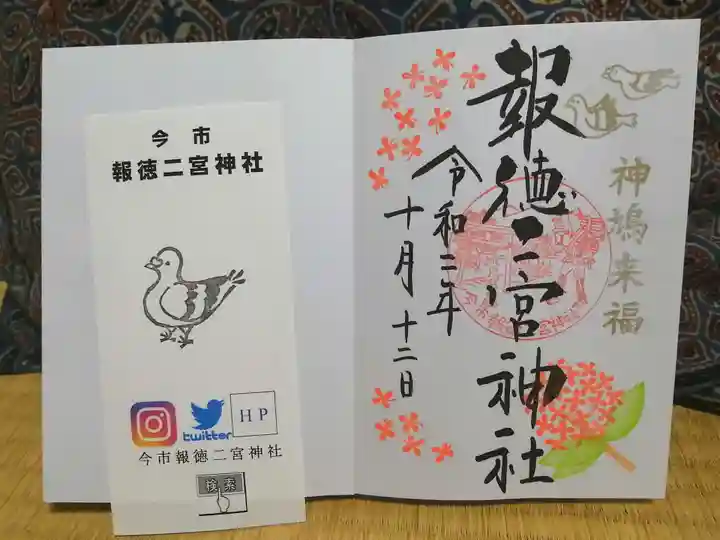 今市
報徳二宮神社
twitter
HP
今市報徳二宮神社
検索
報徳二宮神社
令和二年
十月十二日
神鳩来福